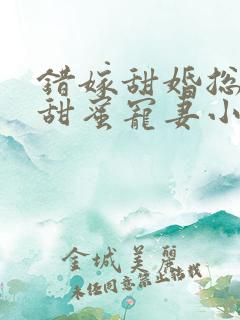 错嫁甜婚总
甜蜜宠妻小
金城美丽
未经同意禁止转载